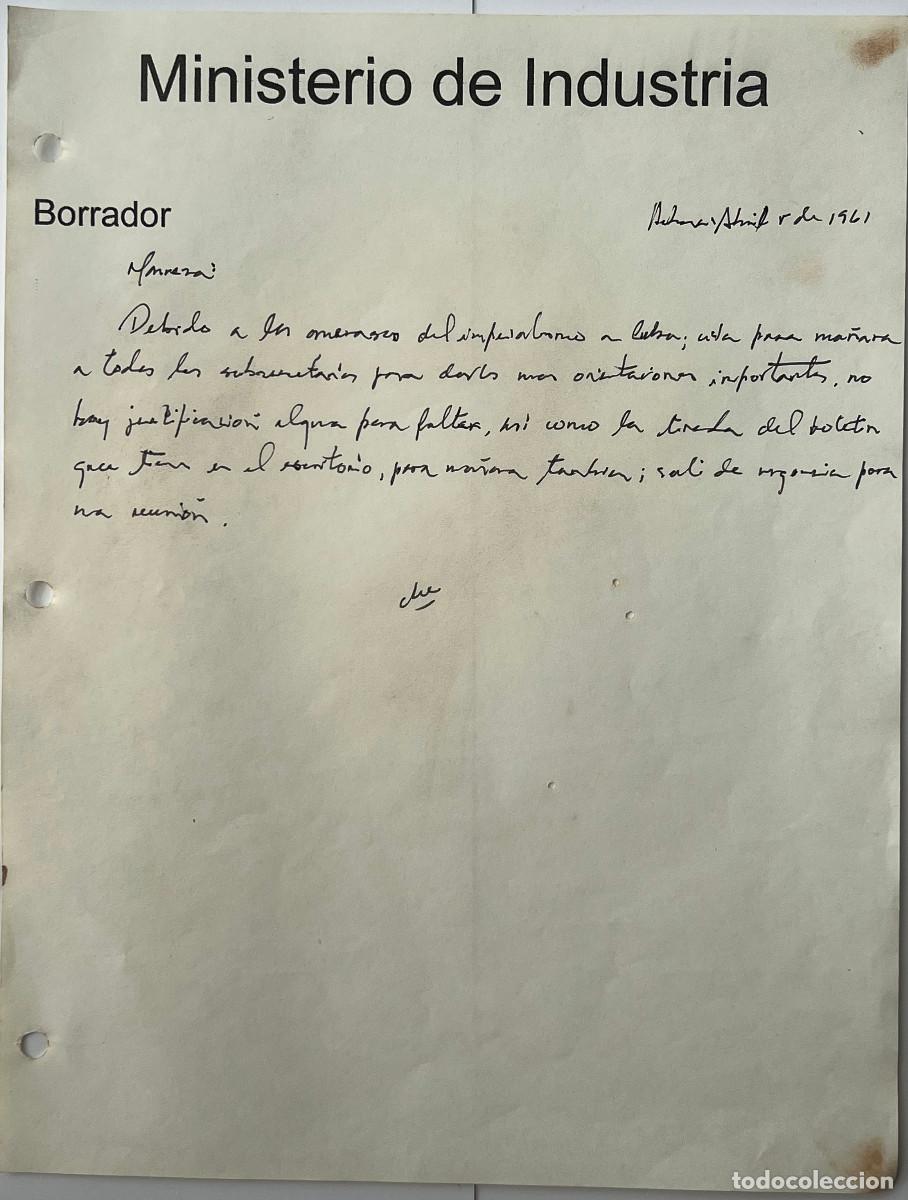 Ministerio de Industria
Borrador
Habana, Abril 5 de 1961
Manresa:
Debido a las amenazas del imperialismo a Cuba; cita para mañana
a todos los subsecretarios para darles unas orientaciones importantes, no
hay justificación alguna para faltar, así como la tirada del boletín
que tienes en el escritorio, para mañana tambien; salí de urgencia para
una reunión.
Che
todocoleccion